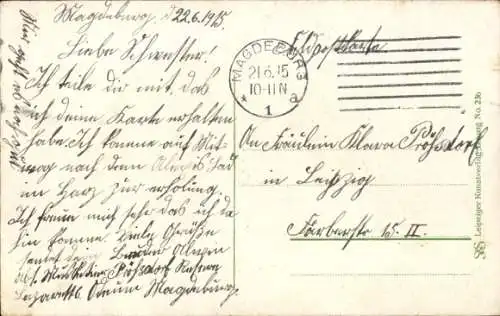 Magdeburg, d 22.6.1915.
Liebe Schwester!
Ich teile dir mit, das
ich deine Karte erhalten
habe. Ich komme auf Mit-
wog nach dem
im Harz zur erholung.
Ich freue mich sehr das ich da
hin komme. Viele Grüße
sendet dein Bruder
Abt. Musketier Pößdorf
Lazarett Odeum Magdeburg
Wie geht es
Feldpostkarte
MAGDEBURG
21.6.15
10-11 N
* 1 a
An Fräulein Klara Pößdorf
in Leipzig
Färberstr 15. II.
Leipziger Kunstverlag No. 23b